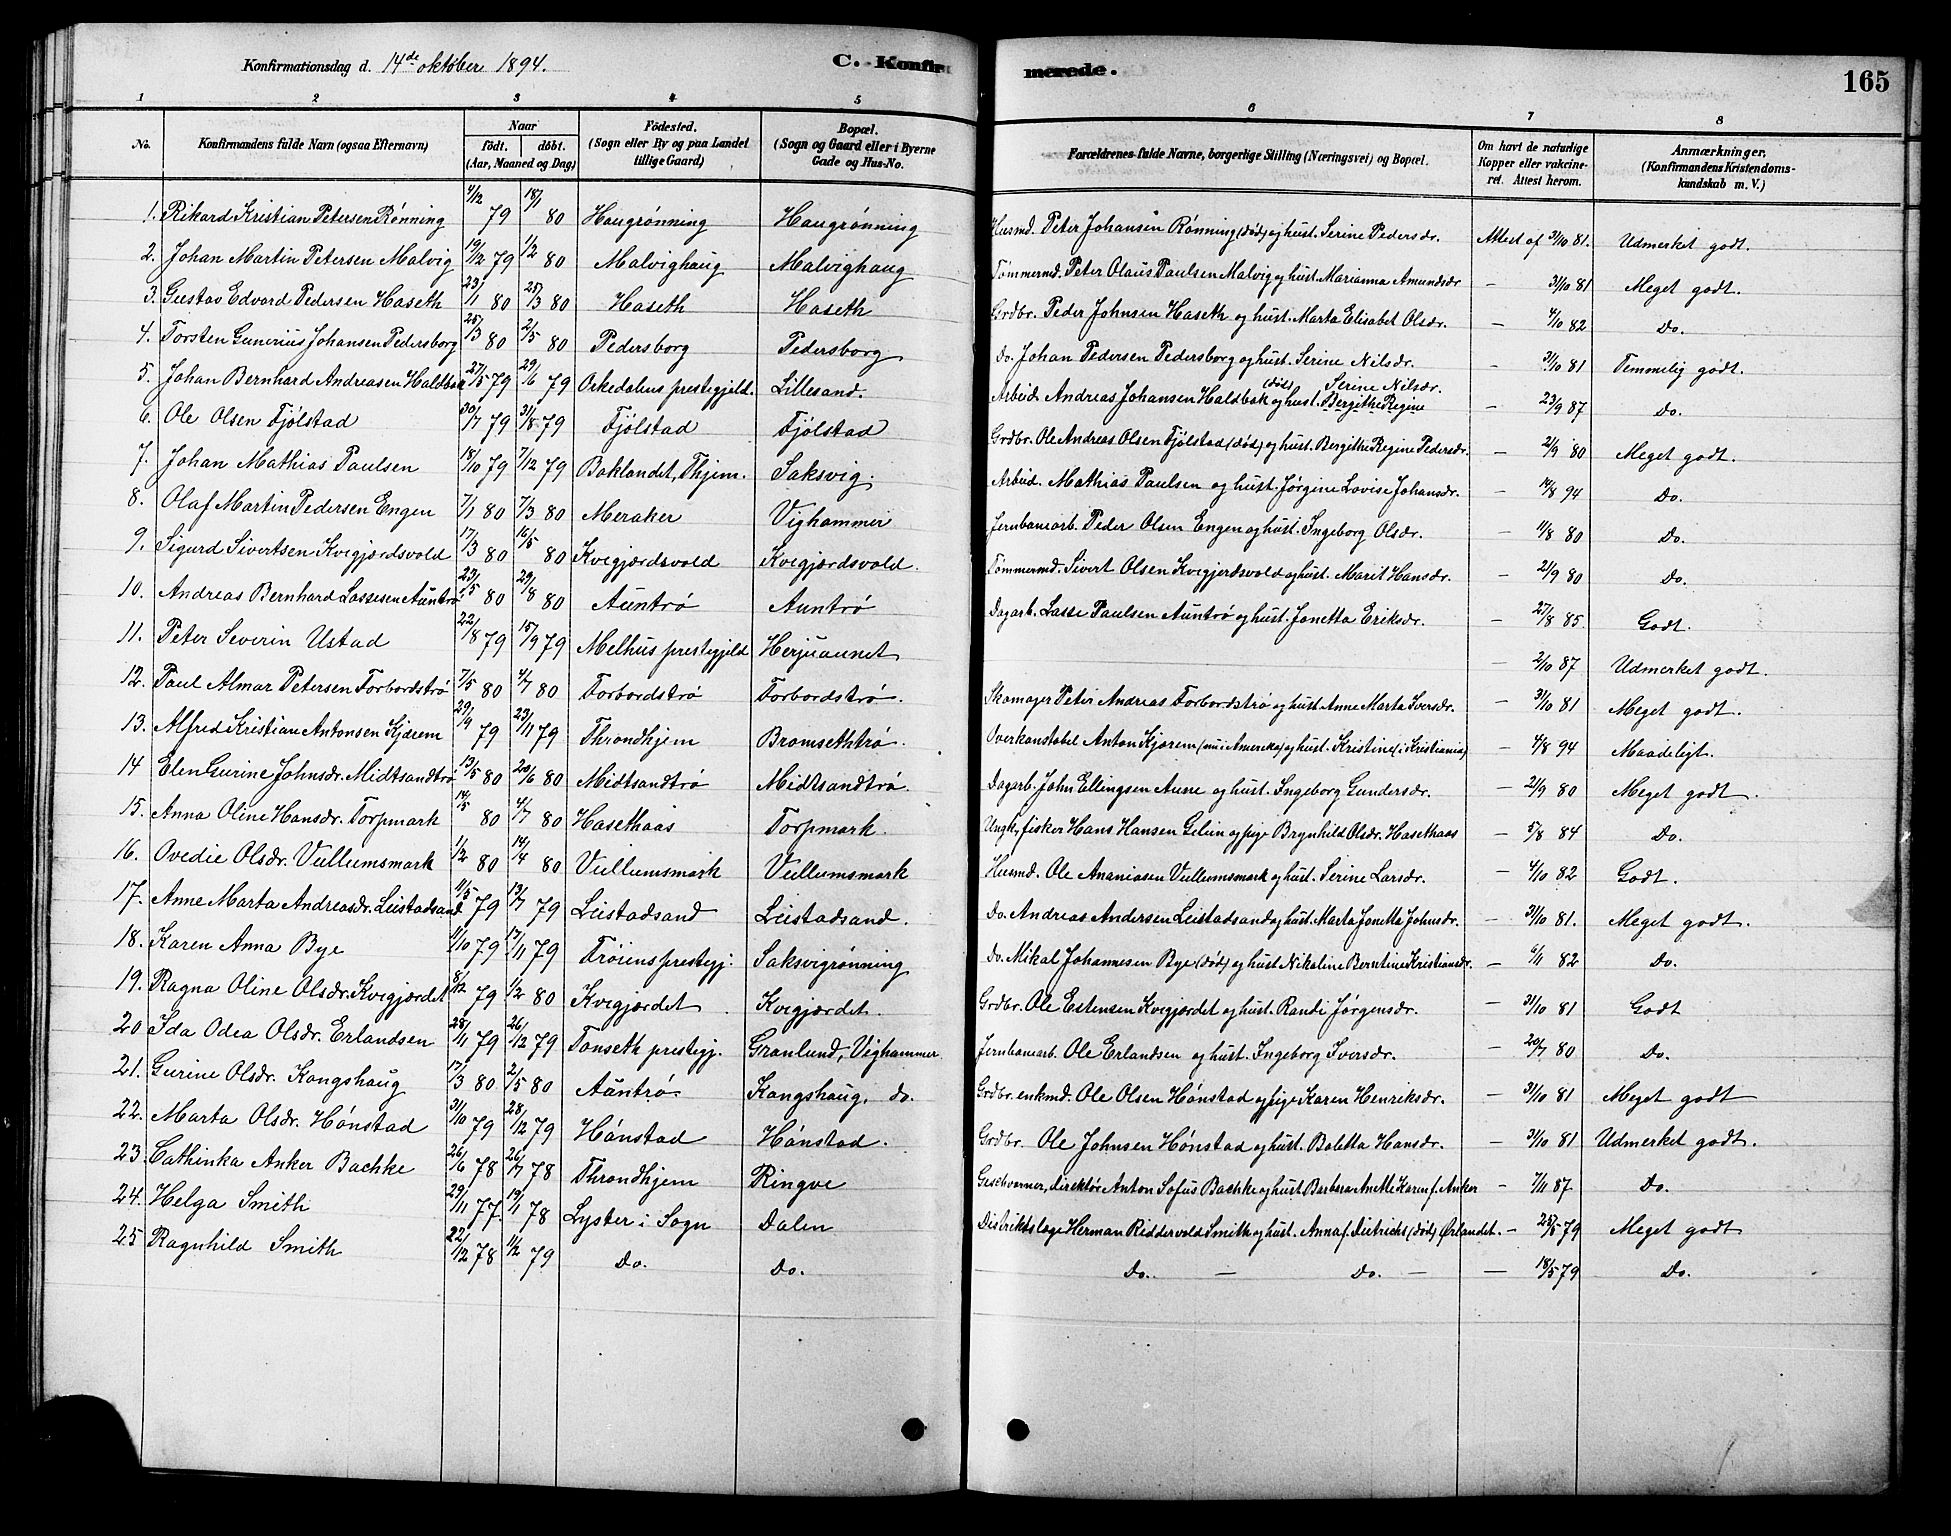 Konfirmationsdag d. 14de oktober 1894.
C. Konfir
merede.
165
1 2 3 4 5 6 7 8
No.
Konfirmandens fulde Navn (ogsaa Efternavn)
Naar
födt. döbt.
(Aar, Maaned og Dag)
Födested.
(Sogn eller By og paa Landet
tillige Gaard)
Bopæl.
(Sogn og Gaard eller i Byerne
Gade og Hus-No.
Forældrenes fulde Navne, borgerlige Stilling (Næringsvei) og Bopæl.
Om havt de naturlige
Kopper eller vakcine-
ret. Attest herom.
Anmærkninger,
(Konfirmandens Kristendoms-
kundskab m. V.)
1. Rikard Kristian Petersen Rönning 4/12 79 18/1 80 Haugrönning Haugrönning Husmd. Peter Johansen Rönning (död) og hust. Serine Pedersdr. Attest af 31/10 81. Udmerket godt.
2. Johan Martin Petersen Malvig 19/12 79 1/2 80 Malvighaug Malvighaug Tömmermd. Peter Olaus Paulsen Malvig og hust. Marianna Amundsdr — 31/10 81 Meget godt.
3. Gustav Edvard Pedersen Haseth 23/1 80 25/3 80 Haseth Haseth Grdbr. Peder Johnsen Haseth og hust. Marta Elisabet Olsdr. — 4/10 82 Do.
4. Torsten Gunerius Johansen Pedersborg 25/3 80 2/5 80 Pedersborg Pedersborg Do. Johan Pedersen Pedersborg og hust. Serine Nilsdr. — 31/10 81 Temmelig godt.
5. Johan Bernhard Andreasen Haldbak 27/5 79 29/6 79 Orkedalens prestegjeld. Lillesand. Arbeid. Andreas Johansen Haldbak (död) og hust. Serine Nilsdr. Bergithe Regine — 23/9 87 Do.
6. Ole Olsen Fjölstad 30/7 79 31/8 79 Fjölstad Fjölstad Grdbr. Ole Andreas Olsen Fjölstad (död) og hust. Bergithe Regine Pedersdr. — 2/9 80 Meget godt.
7. Johan Mathias Paulsen 18/10 79 7/12 79 Baklandet, Thjem. Saksvig. Arbeid. Mathias Paulsen og hust. Jörgine Lovise Johansdr. — 14/8 94 Do.
8. Olaf Martin Pedersen Engen 7/1 80 7/3 80 Meraker Vighammer Jernbanearb. Peder Olsen Engen og hust. Ingeborg Olsdr. — 11/8 80 Do.
9. Sigurd Sivertsen Kvigjerdsvold 17/3 80 16/5 80 Kvigjerdsvold Kvigjerdsvold. Tömmermd. Sivert Olsen Kvigjerdsvold og hust. Marit Hansdr. — 21/9 80 Do.
10. Andreas Bernhard Lassesen Auntrö 23/5 80 29/8 80 Auntrö Auntrö Dagarb. Lasse Paulsen Auntrö og hust. Jonetta Eriksdr. — 27/8 85. Godt.
11. Peter Severin Ustad 22/8 79 15/9 79 Melhus prestegjeld Herjuaunet — 2/10 87 Udmerket godt.
12. Paul Almar Petersen Forbordströ 7/5 80 4/7 80 Forbordströ Forbordströ. Skomager Peter Andreas Forbordströ og hust. Anne Marta Iversdr. — 31/10 81 Meget godt.
13. Alfred Kristian Antonsen Kjörem 29/9 79 23/11 79 Throndhjem Bromsethtrö. Overkonstabel Anton Kjörem (nu i Amerika) og hust. Kristine (i Kristiania) — 4/8 94 Maadeligt.
14 Elen Gurine Johnsdr. Midtsandtrö 13/5 80 20/6 80 Midtsandtrö Midtsandtrö. Dagarb. John Ellingsen Aune og hust. Ingeborg Gundersdr. — 21/9 80 Meget godt.
15. Anna Oline Hansdr. Torpmark 14/5 80 4/7 80 Hasethaas Torpmark. Ungk. fisker Hans Hansen Gelein og pige Brynhild Olsdr. Hasethaas — 5/8 84 Do.
16. Ovedie Olsdr. Vullumsmark 1/2 80 14/4 80 Vullumsmark Vullumsmark Husmd. Ole Ananiasen Vullumsmark og hust. Serine Larsdr. — 4/10 82 Godt.
17. Anne Marta Andreasdr. Leistadsand 11/5 79 13/7 79 Leistadsand Leistadsand. Do. Andreas Andersen Leistadsand og hust. Marta Jonetta Johnsdr. — 31/10 81. Meget godt.
18. Karen Anna Bye 11/10 79 17/11 79 Fröiens prestegj. Saksvigrönning Do. Mikal Johannesen Bye (död) og hust. Nikoline Berntine Kristiansdr. — 6/11 82 Do.
19. Ragna Oline Olsdr. Kvigjerdet 8/12 79 1/2 80 Kvigjerdet Kvigjerdet. Grdbr. Ole Estensen Kvigjerdet og hust. Randi Jörgensdr. — 31/10 81 Godt
20 Ida Odea Olsdr. Erlandsen 28/11 79 26/12 79 Tonseth prestegj. Granlund, Vighammer Jernbanearb. Ole Erlandsen og hust. Ingeborg Iversdr. — 20/7 80 Do.
21. Gurine Olsdr. Kongshaug 17/3 80 2/5 80 Auntrö. Kongshaug. do. Grdbr. enkmd. Ole Olsen Hönstad og pige Karen Henriksdr. — 31/10 81 Meget godt
22. Marta Olsdr. Hönstad 31/10 79 28/12 79 Hönstad Hönstad. Grdbr. Ole Johnsen Hönstad og hust. Boletta Hansdr. — 31/10 81 Udmerket godt.
23. Cathinka Anker Bachke 26/6 78 26/7 78 Throndhjem Ringve Geschvorner, direktör Anton Sofus Bachke og hust. Barbara Anette Karen f. Anker — 7/11 87. Do.
24. Helga Smith 29/11 77. 19/1 78 Lyster i Sogn Dalen Distriktslæge Herman Riddervold Smith og hust. Anna f. Dietrichs (död) Ørlandet. — 25/5 79 Meget godt
25 Ragnhild Smith 22/12 78 1/2 79 Do. Do. Do. — Do. — — 18/5 79 Do.